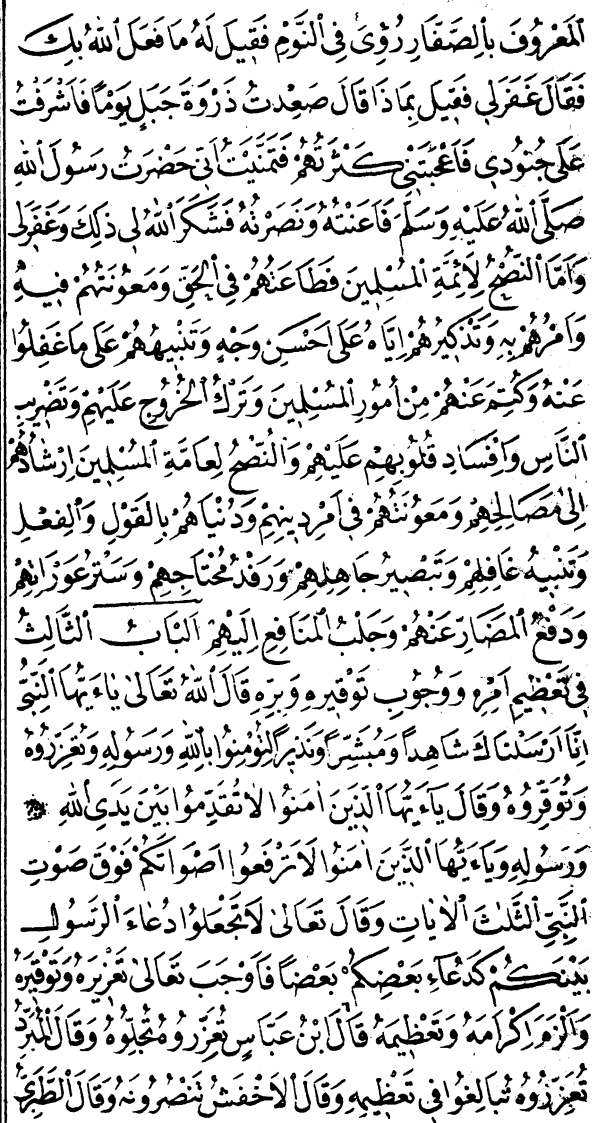 المَعْرُوفَ بِالصَّفَّارِ رُؤِىَ فِى النَّوْمِ فَقِيلَ لَهُ مَا فَعَلَ اللهُ بِكَ
فَقَالَ غَفَرَلِى فَقِيلَ بِمَاذَا قَالَ صَعِدْتُ ذَرْوَةَ جَبَلٍ يَوْمًا فَاَشْرَفْتُ
عَلَى جُنُودِى فَاَعْجَبَتْنِى كَثْرَتُهُمْ فَتَمَنَّيْتُ اَنِّى حَضَرْتُ رَسُولَ اللهِ
صَلَّى اللهُ عَلَيْهِ وَسَلَّمَ فَاَعَنْتُهُ وَنَصَرْتُهُ فَشَكَرَ اللهُ لِى ذٰلِكَ وَغَفَرَلِى
وَاَمَّا النُّصْحُ لِاَئِمَّةِ المُسْلِمِينَ فَطَاعَتُهُمْ فِى الحَقِّ وَمَعُونَتُهُمْ فِيهِ
وَاَمْرُهُمْ بِهِ وَتَذْكِيرُهُمْ اِيَّاهُ عَلَى اَحْسَنِ وَجْهٍ وَتَنْبِيهُهُمْ عَلَى مَا غَفِلُوا
عَنْهُ وَكُتِمَ عَنْهُمْ مِنْ اُمُورِ المُسْلِمِينَ وَتَرْكُ الخُرُوجِ عَلَيْهِمْ وَتَضْرِيبِ
النَّاسِ وَاِفْسَادِ قُلُوبِهِمْ عَلَيْهِمْ وَالنُّصْحُ لِعَامَّةِ المُسْلِمِينَ اِرْشَادُهُمْ
اِلَى مَصَالِحِهِمْ وَمَعُونَتُهُمْ فِى اَمْرِ دِينِهِمْ وَدُنْيَاهُمْ بِالقَوْلِ وَالفِعْلِ
وَتَنْبِيهُ غَافِلِهِمْ وَتَبْصِيرُ جَاهِلِهِمْ وَرَفْدُ مُحْتَاجِهِمْ وَسَتْرُ عَوْرَاتِهِمْ
وَدَفْعُ المَضَارِّ عَنْهُمْ وَجَلْبُ المَنَافِعِ اِلَيْهِمْ البَابُ الثَّالِثُ
فِى تَعْظِيمِ اَمْرِهِ وَوُجُوبِ تَوْقِيرِهِ وَبِرِّهِ قَالَ اللهُ تَعَالَى يَاءَيُّهَا النَّبِىُّ
اِنَّا اَرْسَلْنَاكَ شَاهِداً وَمُبَشِّراً وَنَذِيراً لِتُؤْمِنُوا بِاللهِ وَرَسُولِهِ وَتُعَزِّرُوهُ
وَتُوَقِّرُوهُ وَقَالَ يَاءَيُّهَا الَّذِينَ اٰمَنُوا لَا تُقَدِّمُوا بَيْنَ يَدَىِ اللهِ
وَرَسُولِهِ وَيَاءَيُّهَا الَّذِينَ اٰمَنُوا لَا تَرْفَعُوا اَصْوَاتَكُمْ فَوْقَ صَوْتِ
النَّبِىِّ الثَّلٰثَ الاٰيَاتِ وَقَالَ تَعَالَى لَا تَجْعَلُوا دُعَاءَ الرَّسُولِ
بَيْنَكُمْ كَدُعَآءِ بَعْضِكُمْ بَعْضاً فَاَوْجَبَ تَعَالَى تَعْزِيرَهُ وَتَوْقِيرَهُ
وَاَلْزَمَ اِكْرَامَهُ وَتَعْظِيمَهُ قَالَ ابْنُ عَبَّاسٍ تُعَزِّرُوهُ تُجِلُّوهُ وَقَالَ المُبَرِّدُ
تُعَزِّرُوهُ تُبَالِغُوا فِى تَعْظِيمِهِ وَقَالَ الاَخْفَشُ تَنْصُرُونَهُ وَقَالَ الطَّبَرِىُّ